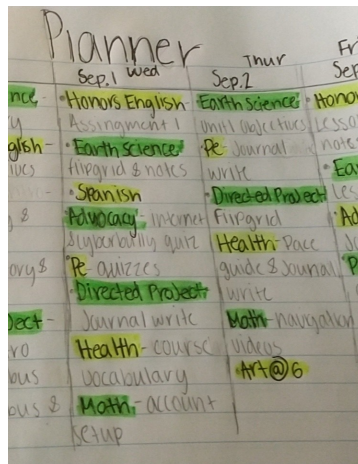 Planner
Sep. 1 Wed
• Honors English-
Assingment 1
• Earth Science
flipgrid & notes
• Spanish
Advocacy- internet
&cyberbully quiz
Pe- quizzes
• Directed Project
Journal write
Health- course
vocabulary
Math- account
setup
Thur
Sep. 2
Earth Science
unit1 objectives
Pe- Journal
write
Directed Project
Flipgrid
Health- Pace
guide & Journal
write
Math- navigation
videos
Art@6